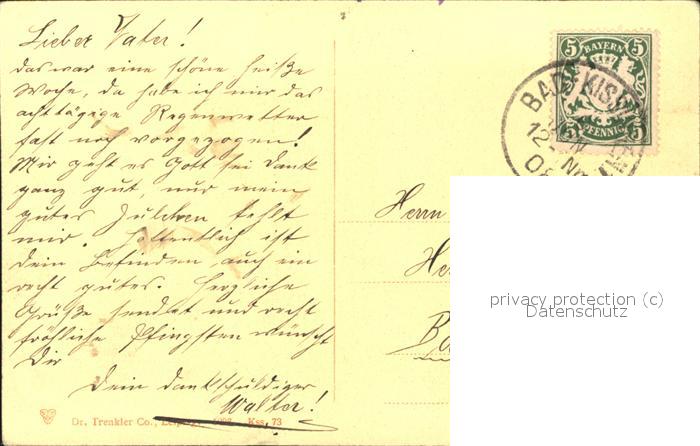 Lieber Vater!
das war eine schöne heiße
Woche, da habe ich mir das
achttägige Regenwetter
fast noch vorgezogen!
Mir geht es Gott sei Dank
ganz gut nur mein
gutes Julchen fehlt
mir. Hoffentlich ist
dein Befinden auch ein
recht gutes. Herzliche
Grüße sendet und recht
fröhliche Pfingsten wünscht
Dir
Dein dankschuldiger
Walter!
Dr. Trenkler Co., Leipzig. Kss. 73
5 BAYERN 5
5 PFENNIG 5
BAD KIS
12
Herrn
privacy protection (c)
Datenschutz